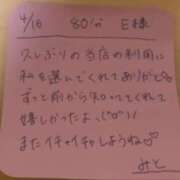 4/18 80分 E様
久しぶりの当店の利用に
私を選んでくれてありがとう
ずっと前から知っててくれて
嬉しかったよ
またイチャイチャしようね♡
みと